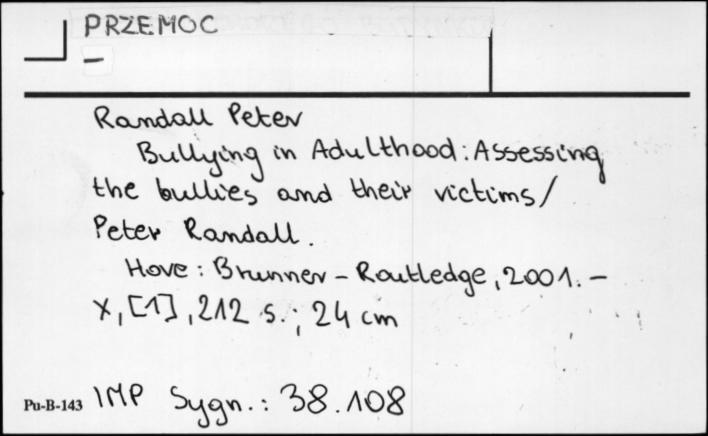 PRZEMOC
–
Randall Peter
Bullying in Adulthood : Assessing
the bullies and their victims /
Peter Randall.
Hove : Brunner – Routledge, 2001. –
X, [1], 212 s. ; 24 cm
Pu-B-143 IMP Sygn. : 38.108